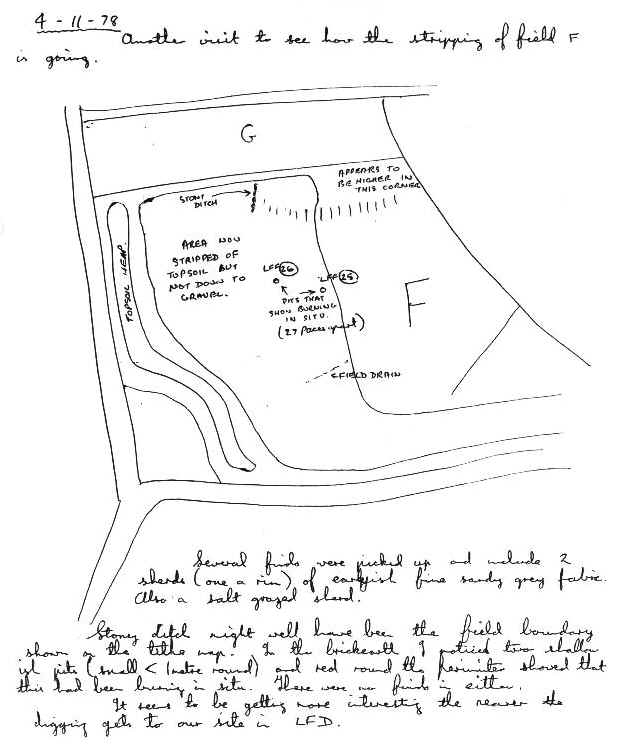 4 - 11 - 78
Another visit to see how the stripping of field F
is going.
G
APPEARS TO
BE HIGHER IN
THIS CORNER
STONY
DITCH
AREA NOW
STRIPPED OF
TOPSOIL BUT
NOT DOWN TO
GRAVEL.
TOPSOIL HEAP.
LFF 26
LFF 25
PITS THAT
SHOW BURNING
IN SITU.
(27 Paces apart)
F
FIELD DRAIN
Several finds were picked up and include 2
sherds (one a rim) of earlyish fine sandy grey fabric.
Also a salt glazed sherd.
Stoney ditch might well have been the field boundary
shown on the tithe map. In the brickearth I noticed two shallow
ish pits (small < 1 metre round) and red round the perimiter showed that
this had been burning in situ. There were no finds in either.
It seems to be getting more interesting the nearer the
digging gets to our site in LFD.